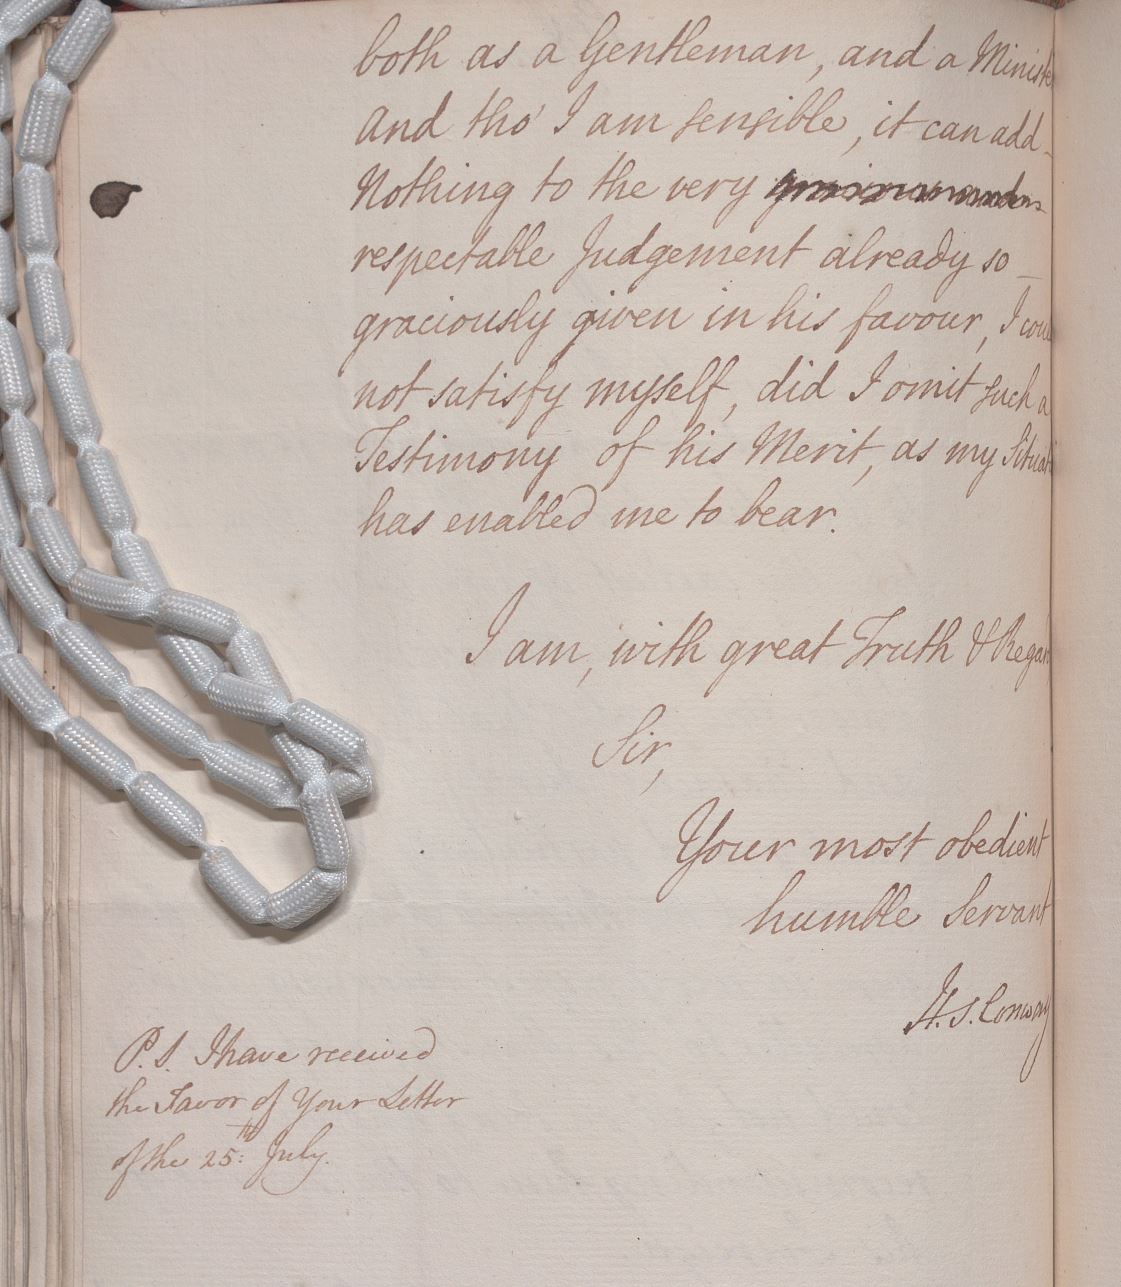 both as a Gentleman, and a Ministe
And tho' I am sensible, it can add
Nothing to the very
respectable Judgement already so
graciously given in his favour, I cou
not satisfy myself, did I omit such a
Testimony of his Merit, as my Situati
has enabled me to bear.
I am, with great Truth & Regar
Sir,
Your most obedient
humble Servant
H. S. Conway
P. S. I have received
the Favor of Your Letter
of the 25:th July.